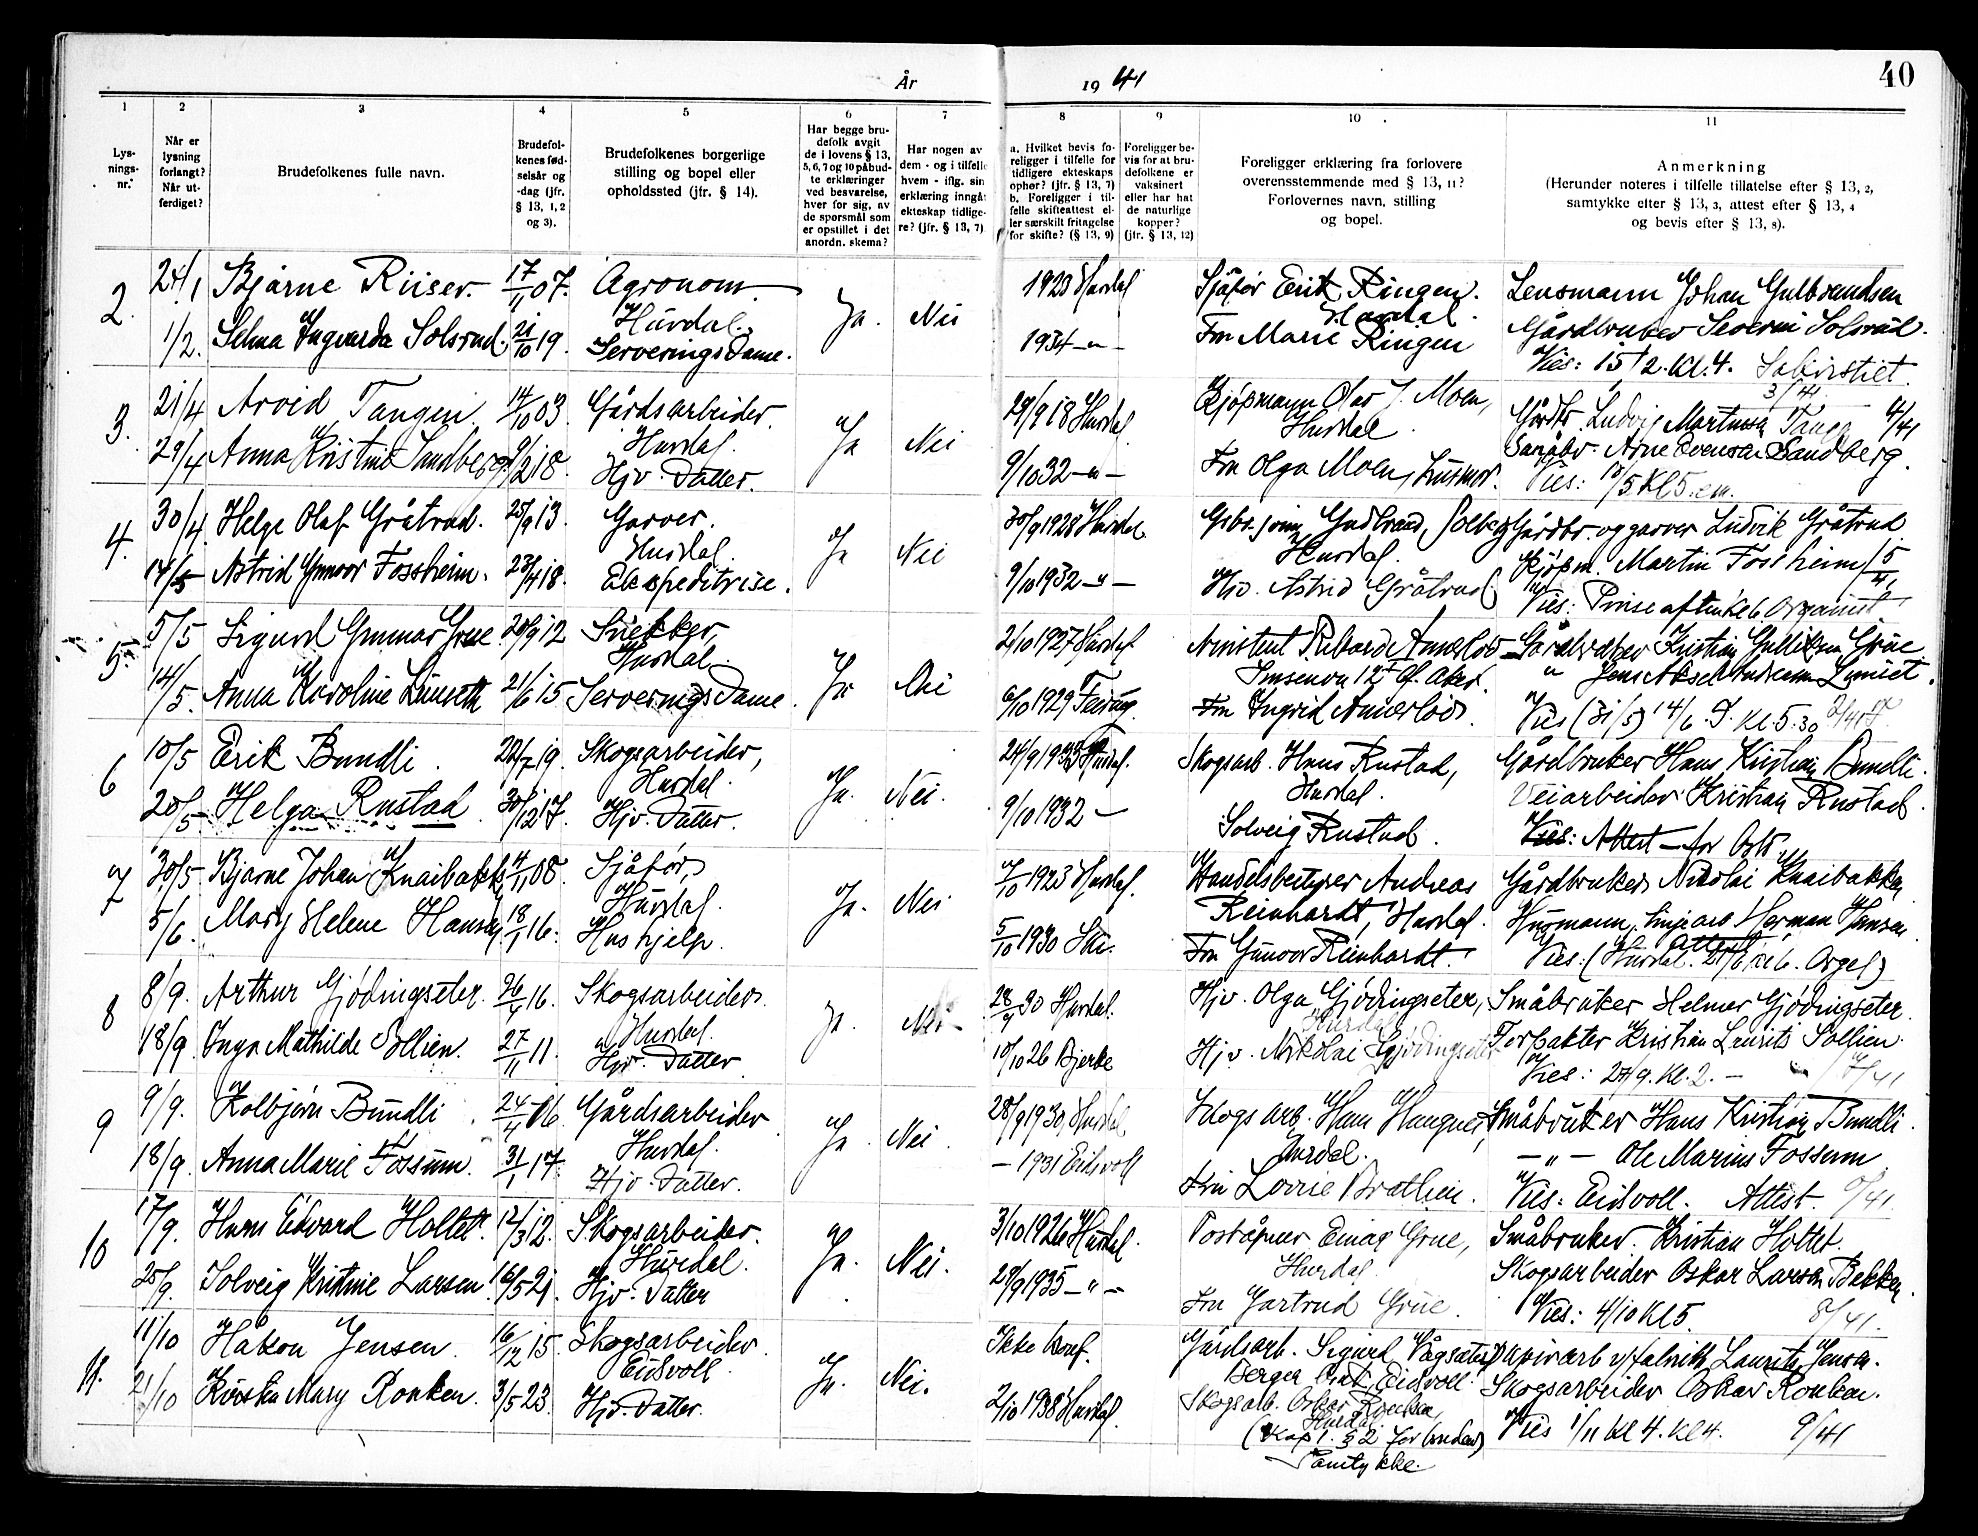 År 1941
40
1 2 3 4 5 6 7 8 9 10 11
Lys-
nings-
nr.
Når er
lysning
forlangt?
Når ut-
ferdiget?
Brudefolkenes fulle navn.
Brudefol-
kenes fød-
selsår og
-dag (jfr.
§ 13, 1, 2
og 3).
Brudefolkenes borgerlige
stilling og bopel eller
opholdssted (jfr. § 14).
Har begge bru-
defolk avgit
de i lovens § 13,
5, 6, 7 og 10 påbud-
te erklæringer
ved besvarelse,
hver for sig, av
de spørsmål som
er opstillet i det
anordn. skema?
Har nogen av
dem - og i tilfelle
hvem - iflg. sin
erklæring inngåt
ekteskap tidlige-
re? (jfr. § 13, 7)
a. Hvilket bevis fo-
religger i tilfelle for
tidligere ekteskaps
ophør? (§ 13, 7)
b. Foreligger i til-
felle skifteattest el-
ler særskilt fritagelse
for skifte? (§ 13, 9)
Foreligger be-
vis for at bru-
defolkene er
vaksinert
eller har hat
de naturlige
kopper?
(jfr. § 13, 12)
Foreligger erklæring fra forlovere
overensstemmende med § 13, 11?
Forlovernes navn, stilling
og bopel.
Anmerkning
(Herunder noteres i tilfelle tillatelse efter § 13, 2,
samtykke efter § 13, 3, attest efter § 13, 4
og bevis efter § 13, 8).
2. 24/1 Bjarne Riiser. 17/11 07. Agronom Ja. Nei 1923 Hurdal Sjåfør Erik Ringen. Lensmann Johan Gulbrandsen
Hurdal. Hurdal.
1/2. Selma Ingvarda Solsrud. 21/10 19. Serveringsdame. 1934 -"- Fru Marie Ringen Gårdbruker Severin Solsrud.
Vies: 15/2. Kl. 4.
3/41
3. 21/4 Arvid Tangen. 14/10 03 Gårdsarbeider. Ja Nei 29/9 18 Hurdal Kjøpmann Olav J. Moen, Gårdbr. Ludvig Martinsen Tangen 4/41
Hurdal. Hurdal
29/4 Anna Kristine Sandberg. 9/2 18. Hjv. Datter. 9/10 32 -"- Fru Olga Moen, husmor. Småbr. Arne Evensen Sandberg.
Vies: 10/5 Kl 5. em.
4. 30/4. Helge Olaf Gråtrud. 25/9 13. Garver. Ja Nei 30/9 1928 Hurdal Gudbrand Solberg Gårdbr. og garver Ludvik Gråtrud
Hurdal. Hurdal.
14/5 Astrid Gunvor Fossheim. 23/4 18. Ekspeditrise. 9/10 1932 -"- Hjv. Astrid Gråtrud Kjøpm. Martin Fossheim 5/41
Vies: Pinseaften kl 6 Organist
5. 5/5 Sigurd Gunnar Grue 20/9 12 Snekker, Ja Nei 2/10 1927 Hurdal Gårdbruker Kristian Gulliksen Grue
Hurdal
14/5. Anna Karoline Lunseth 21/6 15 Serveringsdame. 6/10 1929 Feiring Fru Ingrid " Jens Lunset.
Vies (31/5) 14/6. Kl. 5.30
6 10/5 Erik Bundli. 22/7 19. Skogsarbeider, Ja. Nei. 24/9 1933 Hurdal. Skogsarb. Hans Rustad, Gårdbruker Hans Kristian Bundli.
Hurdal. Hurdal.
20/5 Helga Rustad 30/12 17. Hjv. Datter. 9/10 1932 Solveig Rustad. Veiarbeider Kristian Rustad.
Vies: Attest for Oslo
7 30/5 Bjarne Johan Knaibakk 4/11 08. Sjåfør, Ja. Nei 7/10 1923 Hurdal. Handelsbestyrer Andreas Gårdbruker Nikolai Knaibakken
Hurdal. Reinhardt, Hurdal.
5/6. Mary Helene Hansen 18/1 16. Hushjelp. 5/10 1930 Ski. Fru Gunvor Reinhardt. Herman Hansen
Attest
Vies: (Hurdal. kl 6. Orgel)
8 8/9. Arthur Gjødingseter. 26/4 16. Skogsarbeider. Ja. Nei 28/9 30 Hurdal. Hjv. Olga Gjødingseter, Småbruker Helmer Gjødingseter.
Hurdal. Hurdal
18/9 Inga Mathilde Sollien. 27/11 11. Hjv. Datter 10/10 26 Bjerke Hjv. Nikolai Gjødingseter Forpakter Kristian Laurits Sollien.
Vies: 27/9. Kl. 2. - 7/41
9 9/9. Kolbjørn Bundli 24/4 16 Gårdsarbeider Ja. Nei. 28/9 1930, Hurdal Skogsarb. Hans Haugnes, Småbruker Hans Kristian Bundli.
Hurdal. Hurdal.
18/9. Anna Marie Fossum. 31/1 17. Hjv. Datter. - 1931 Eidsvoll Fru Brathen. -"- Ole Marius Fossum
Vies: Eidsvoll. Attest.
10 17/9. Hans Edvard Holtet. 12/3 12. Skogsarbeider. Ja. Nei. 3/10 1926 Hurdal. Poståpner Einar Grue, Småbruker. Kristian Holtet.
Hurdal. Hurdal
25/9. Solveig Kristine Larsen 16/5 21 Hjv. Datter 29/9 1935 -"- Fru Gjertrud Grue. Skogsarbeider Oskar Larsen Bekken.
Vies: 4/10 Kl 5. 8/41.
11. 11/10 Håkon Jensen. 16/12 15. Skogsarbeider. Ja. Nei. Ikke konf. Gårdsarb. Sigurd Papirarb v/fabrikk Lauritz Jensen.
Eidsvoll Eidsvoll.
21/10 Kirsten Mary Ronken. 3/5 23. Hjv. Datter. 2/10 1938 Hurdal. Skogsarb. Oskar Ronken, Skogsarbeider Oskar Ronken.
Hurdal
(Kap 1. § 2 for bruden) Vies 1/11 Kl 4. Kl 4. 9/41
Samtykke.